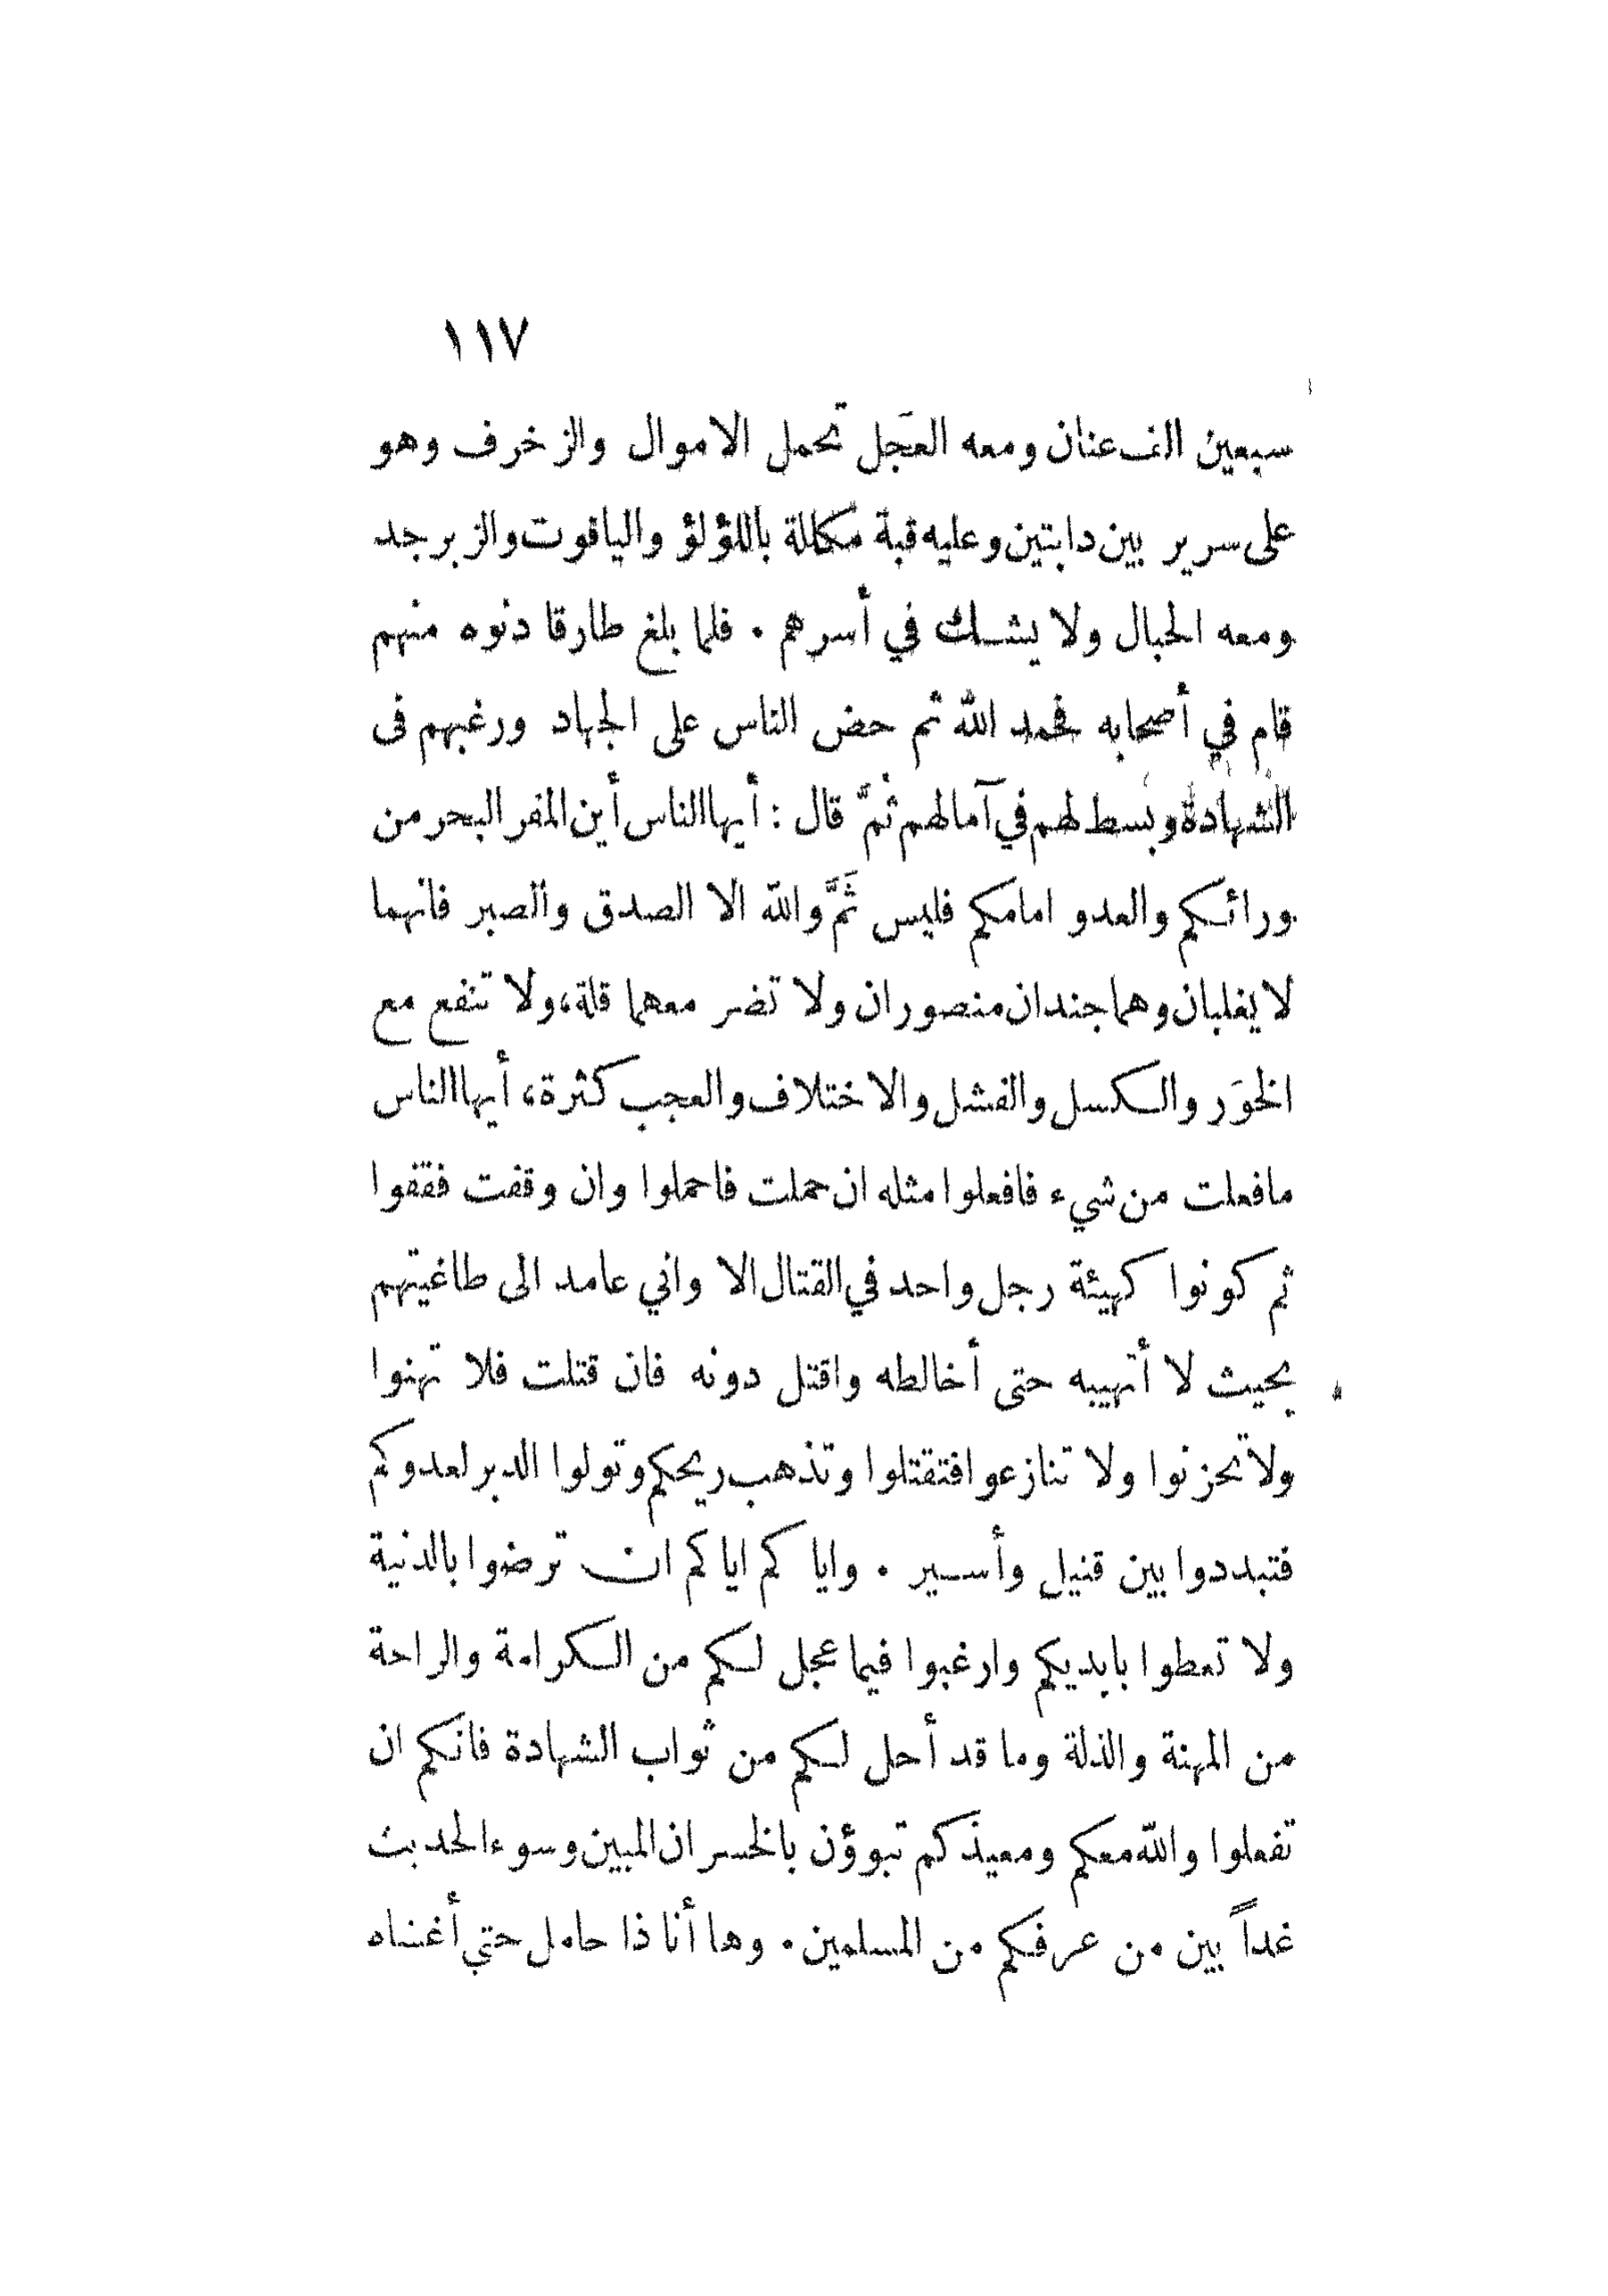 ١١٧
سبعين الف عنان ومعه العَجل تحمل الاموال والزخرف وهو
على سرير بين دابتين وعليه قبة مكللة باللؤلؤ والياقوت والزبرجد
ومعه الحبال ولا يشك في أسرهم . فلما بلغ طارقا دنوه منهم
قام في أصحابه فحمد الله ثم حض الناس على الجهاد ورغبهم فى
الشهادة وبسط لهم في آمالهم ثمَّ قال : أيها الناس أين المفر البحر من
ورائكم والعدو امامكم فليس ثَمَّ والله الا الصدق والصبر فانهما
لا يغلبان وهما جندان منصوران ولا تضر معهما قلة، ولا تنفع مع
الخوَر والكسل والفشل والاختلاف والعجب كثرة، أيها الناس
ما فعلت من شيء فافعلوا مثله ان حملت فاحملوا وان وقفت فقفوا
ثم كونوا كهيئة رجل واحد في القتال الا واني عامد الى طاغيتهم
بحيث لا أتهيبه حتى أخالطه واقتل دونه فان قتلت فلا تهنوا
ولا تحزنوا ولا تنازعوا فتقتلوا وتذهب ريحكم وتولوا الدبر لعدوكم
فتبددوا بين قتيل وأسير . واياكم اياكم ان ترضوا بالدنية
ولا تعطوا بايديكم وارغبوا فيما عجل لكم من الكرامة والراحة
من المهنة والذلة وما قد أحل لكم من ثواب الشهادة فانكم ان
تفعلوا والله معكم ومعيذكم تبوؤن بالخسران المبين وسوء الحديث
غداً بين من عرفكم من المسلمين . وها أنا ذا حامل حتي أغشاه